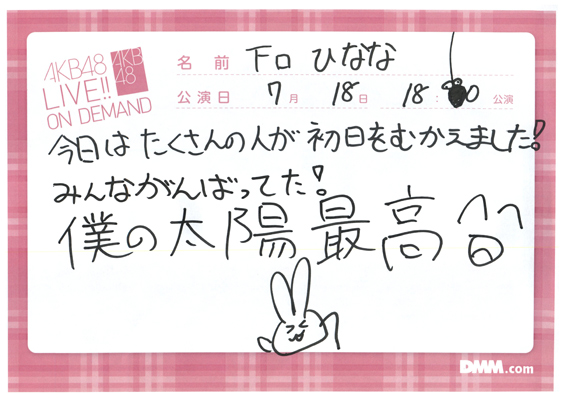 AKB48
LIVE!!
ON DEMAND
AKB
48
名前 下口 ひなな
公演日 7月 18日 18: 0 公演
今日は たくさんの人が 初日をむかえました!
みんながんばってた!
僕の太陽最高
DMM.com